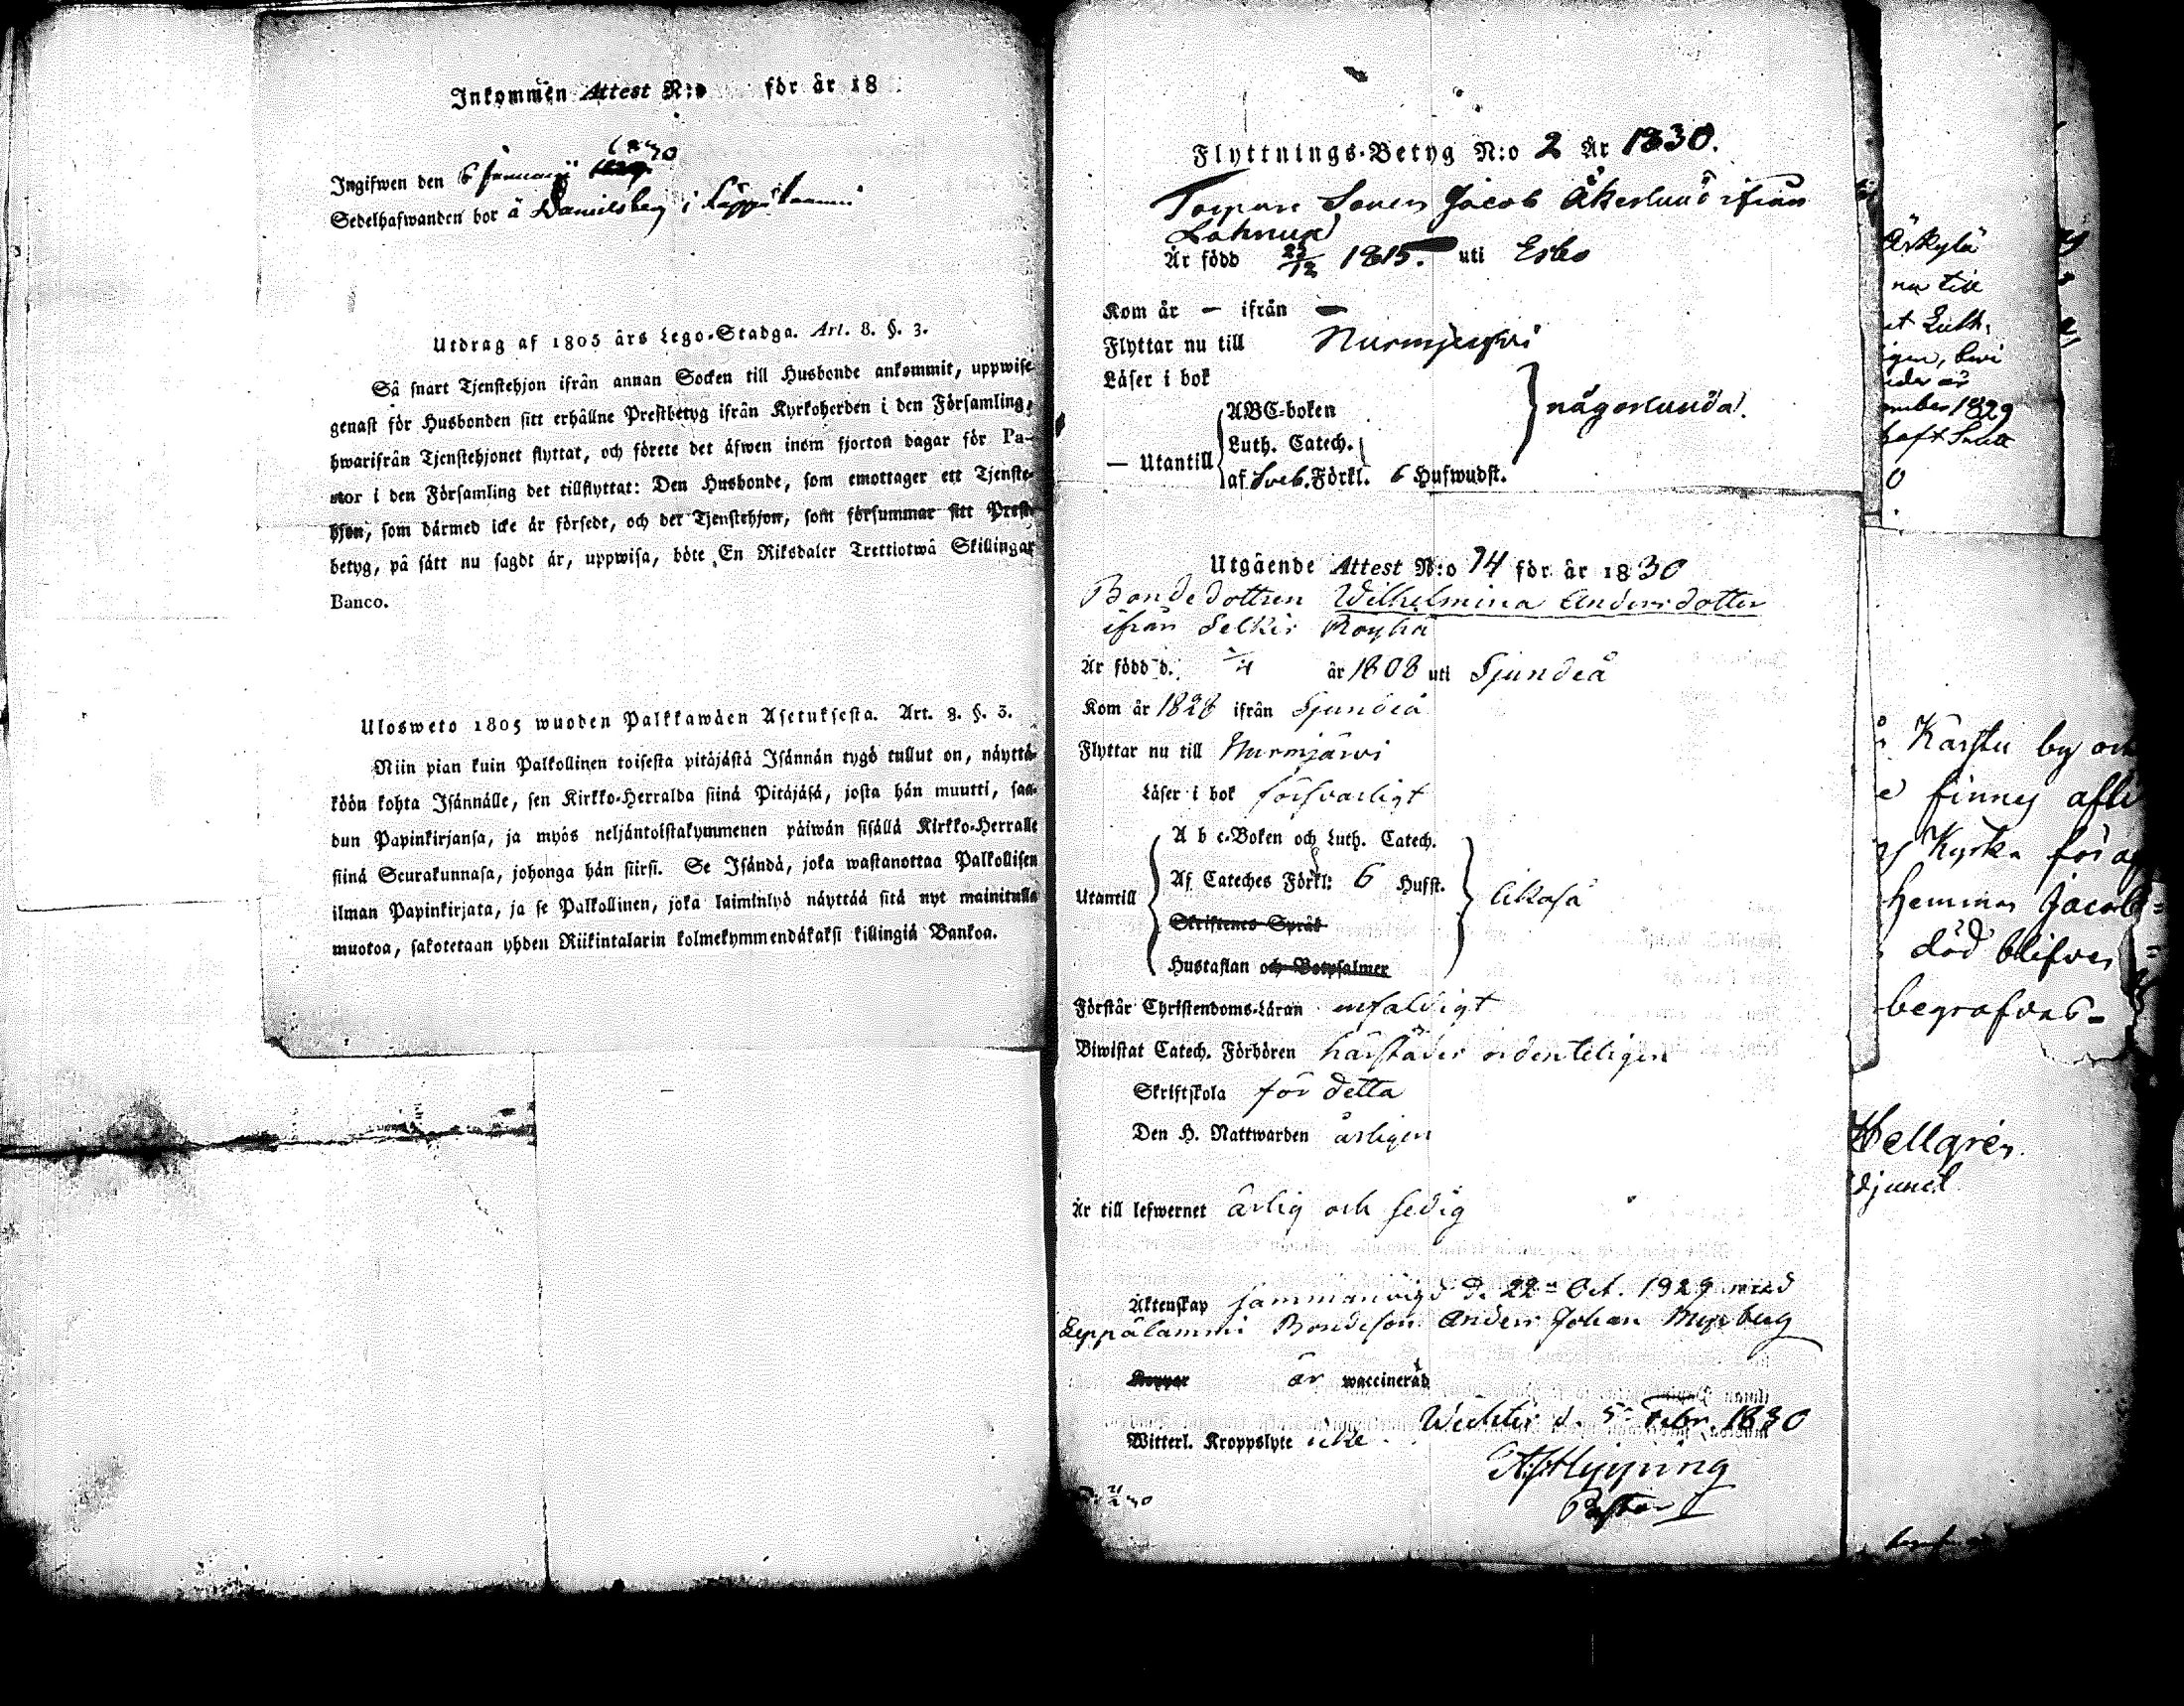 Inkommen Attest N:o för år 18
1830
Ingifwen den 6 Januarii
Sedelhafwanden bor å Danielsberg i Leppälammi
Utdrag af 1805 års Lego-Stadga. Art. 8. §. 3.
Så snart Tjenstehjon ifrån annan Socken till Husbonde ankommit, uppwise
genast för Husbonden sitt erhållne Prestbetyg ifrån Kyrkoherden i den Församling,
hwarifrån Tjenstehjonet flyttat, och förete det äfwen inom fjorton dagar för Pa-
stor i den Församling det tillflyttat: Den Husbonde, som emottager ett Tjenste-
hjon, som därmed icke är försedt, och det Tjenstehjon, som försummar sitt Prest-
betyg, på sätt nu sagdt är, uppwisa, böte En Riksdaler Trettiotwå Skillingar
Banco.
Ulosweto 1805 wuoden Palkkawäen Asetuksesta. Art. 8. §. 3.
Niin pian kuin Palkollinen toisesta pitäjästä Isännän tygö tullut on, näyttä-
köön kohta Isännälle, sen Kirkko-Herralda siinä Pitäjäsä, josta hän muutti, saa-
dun Papinkirjansa, ja myös neljäntoistakymmenen päiwän sisällä Kirkko-Herralle
siinä Seurakunnasa, johonga hän siirsi. Se Isändä, joka wastanottaa Palkollisen
ilman Papinkirjata, ja se Palkollinen, joka laiminlyö näyttää sitä nyt mainitulla
muotoa, sakotetaan yhden Riikintalarin kolmekymmendäkaksi killingiä Bankoa.
Flyttnings-Betyg N:o 2 År 1830.
Torpare Sonen Jacob Åkerlund ifrån
Lahnus
Är född 25/12 1815. uti Esbo
Kom år — ifrån —
Flyttar nu till Nurmijerfvi
Läser i bok
ABC-boken
någorlunda.
Luth. Catech.
— Utantill
af Sveb. Förkl. 6 Hufwudst.
Utgående Attest N:o 14 för år 1830
Bondedottren Wilhelmina Andersdotter
ifrån Selkis Royha
Är född d. /4 år 1808 uti Sjundeå
Kom år 1828 ifrån Sjundeå
Flyttar nu till Nurmjärvi
Läser i bok försvarligt
A b c-Boken och Luth. Catech.
Af Cateches Förkl: 6 Hufst.
Utantill
likaså
Skriftenes Språk
Hustaflan och Botpsalmer
Förstår Christendoms-Läran enfaldigt
Biwistat Catech. Förhören härstädes ordenteligen
Skriftskola för detta
Den H. Nattwarden årligen
Är till lefwernet ärlig och sedig
Äktenskap sammanvigd d. 22 Oct. 1929 med
Leppälammi Bondeson Anders Johan Myrberg
Koppor är waccinerad
Wichtis d. 5 Febr. 1830
Witterl. Kroppslyte icke
Hipping
Pastor
Äskylä
nu till
Luth.
1829
haft
0
Karstu by och
finnes
Kyrka för
hemman Jacob
död blifven
begrafvas
Hellgrén